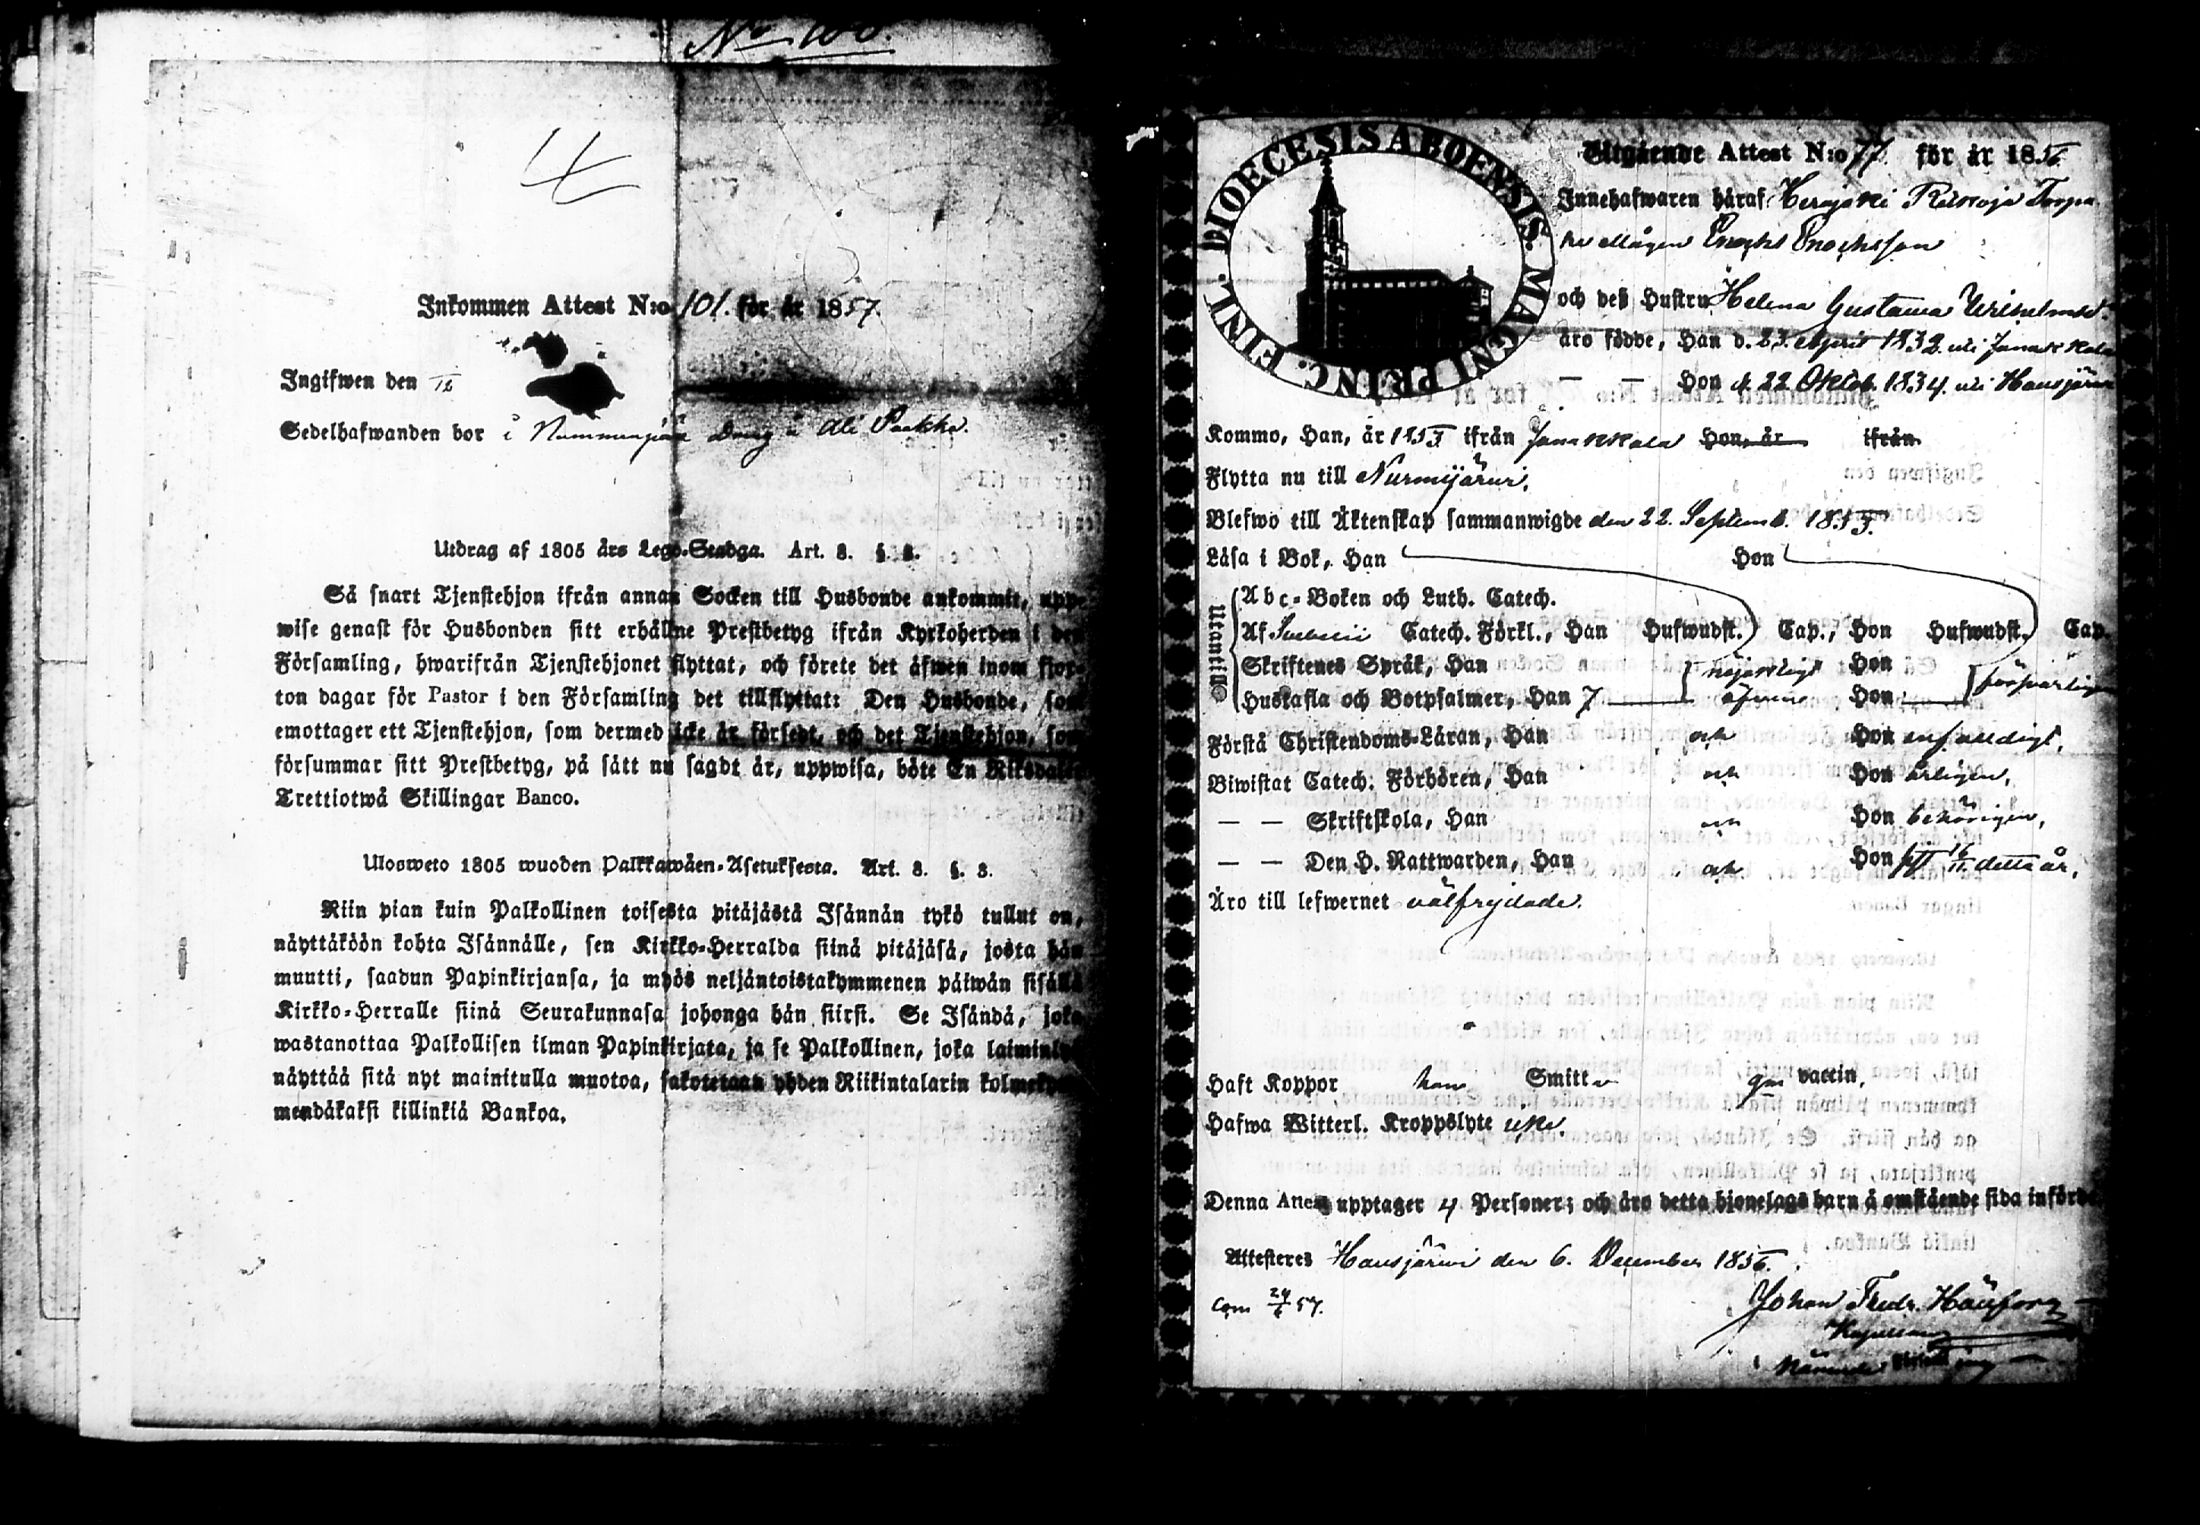 No 100.
Inkommen Attest N:o 101. för år 1857.
Ingifwen den
Sedelhafwanden bor i Nummenpää
Utdrag af 1805 års Lego-Stadga. Art. 8. §. 8.
Så snart Tjenstehjon ifrån annan Socken till Husbonde ankommit, upp-
wise genast för Husbonden sitt erhållne Prestbetyg ifrån Kyrkoherden i den
Församling, hwarifrån Tjenstehjonet flyttat, och förete det äfwen inom fjor-
ton dagar för Pastor i den Församling det tillflyttat: Den Husbonde, som
emottager ett Tjenstehjon, som dermed icke är försedt, och det Tjenstehjon, som
försummar sitt Prestbetyg, på sätt nu sagdt är, uppwisa, böte En Riksdaler
Trettiotwå Skillingar Banco.
Ulosweto 1805 wuoden Palkkawäen-Asetuksesta. Art. 8. §. 8.
Niin pian kuin Palkollinen toisesta pitäjästä Isännän tykö tullut on,
näyttäköön kohta Isännälle, sen Kirkko-Herralda siinä pitäjäsä, josta hän
muutti, saadun Papinkirjansa, ja myös neljäntoistakymmenen päiwän sisällä
Kirkko-Herralle siinä Seurakunnasa johonga hän siirsi. Se Isändä, joka
wastanottaa Palkollisen ilman Papinkirjata, ja se Palkollinen, joka laiminlyö
näyttää sitä nyt mainitulla muotoa, sakotetaan yhden Riikintalarin kolmekym-
mendäkaksi killinkiä Bankoa.
DIOECESIS ABOENSIS. MAGNI PRINC. FINL.
Utgående Attest N:o 77 för år 1856
Innehafwaren häraf Herajoki Torpa-
re Mågen Enoch Enochsson
och deß Hustru Helena Gustawa Wilhelmsd.
äro födde, Han d. 23. April 1832. uti Janakkala
— — Hon d. 22 Oktob. 1834. uti Hausjärwi
Kommo, Han, år 1853 ifrån Janakkala Hon, år ifrån
Flytta nu till Nurmijärwi.
Blefwo till Äktenskap sammanwigde den 22. Septemb. 1853.
Läsa i Bok, Han Hon
Utantill
Abc-Boken och Luth. Catech.
Af Swebelii Catech. Förkl., Han Hufwudst. Cap., Hon Hufwudst. Cap.
Skriftenes Språk, Han nöjaktigt Hon
Hustafla och Botpsalmer, Han 7 Hon
Förstå Christendoms-Läran, Han och Hon enfaldigt.
Biwistat Catech. Förhören, Han och Hon årligen.
— — Skriftskola, Han och Hon behörigen.
— — Den H. Nattwarden, Han och Hon 16/11 detta år.
Äro till lefwernet välfrejdade.
Haft Koppor han Smitt. vaccin.
Hafwa Witterl. Kroppslyte icke.
Denna Attest upptager 4 Personer; och äro detta hjonelags barn å omstående sida införde
Attesteres Hausjärwi den 6. December 1856.
Com 24/6 57.
Johan Fredr.
Kapellan